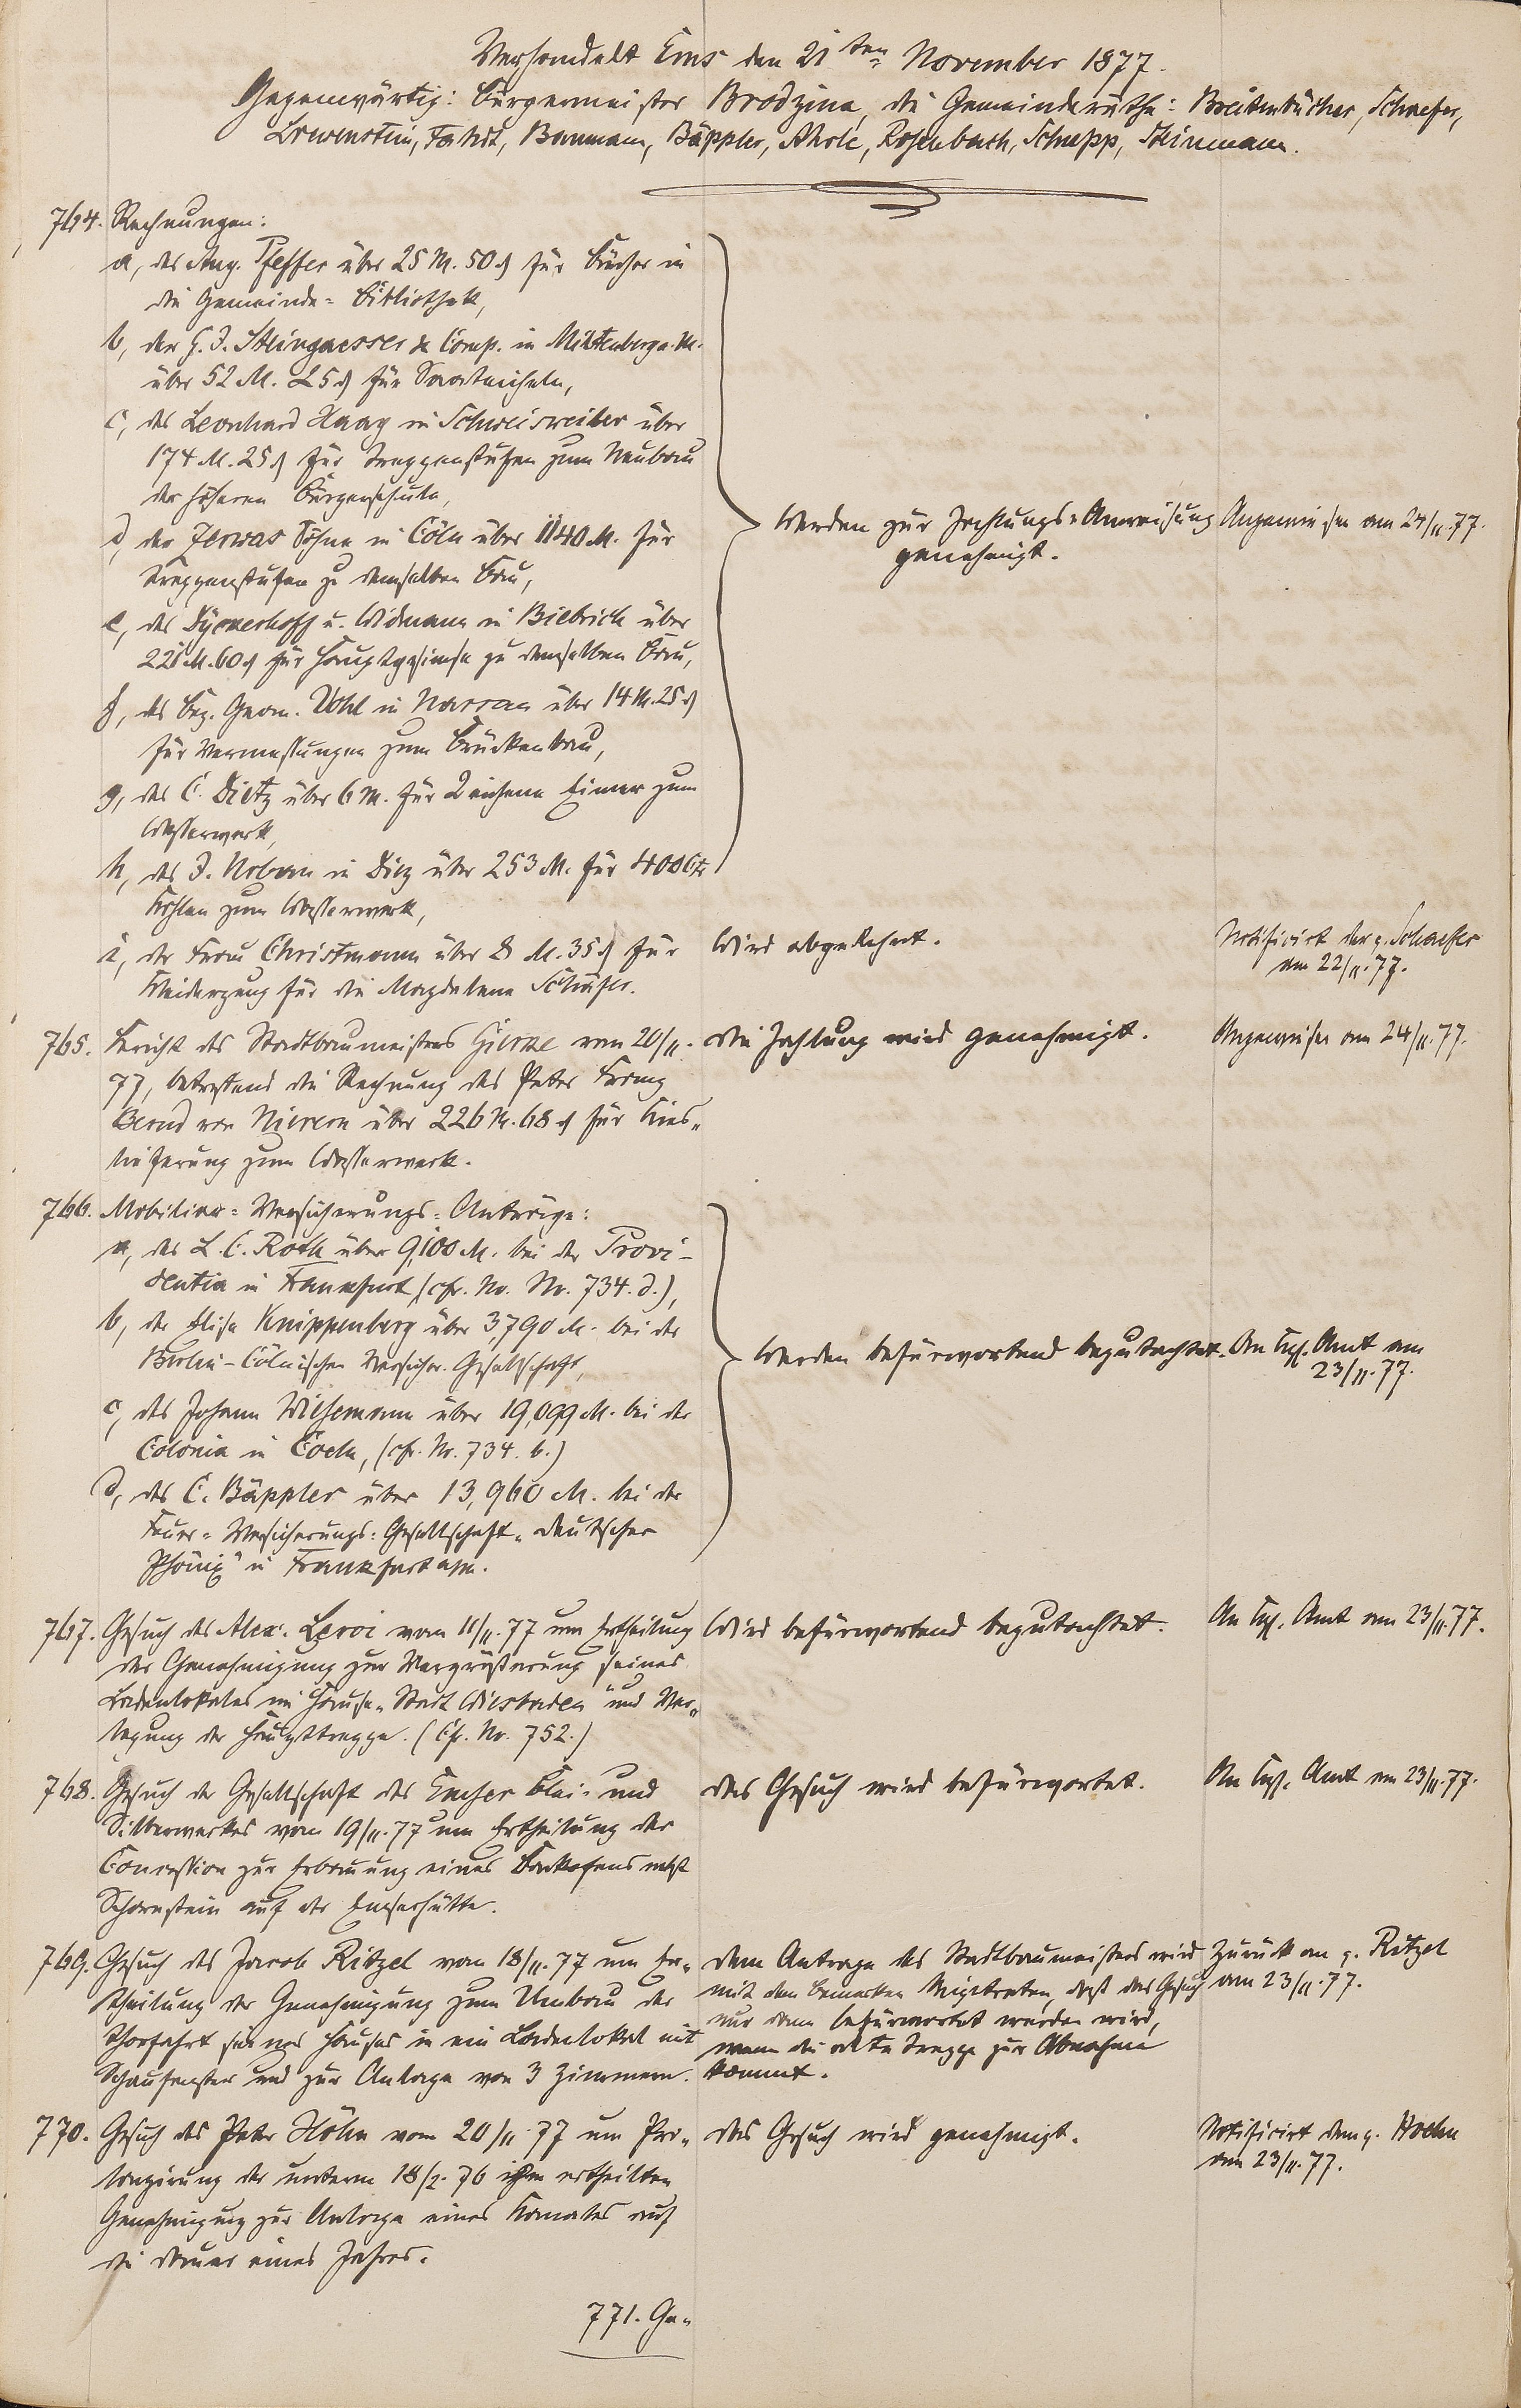 Verhandelt Ems den 21ten November 1877.
Gegenwärtig: Bürgermeister Brodzina, die Gemeinderäthe: Breitenbücher, Schaefer,
Loewenstein, Fahdt, Baumann, Bäppler, Ahrle, Rosenbach, Schupp, Steinmann.
764. Rechnungen:
a, des Aug. Pfeffer über 25 M. 50 ₰ für Bücher in
die Gemeinde-Bibliothek,
b, der G. J. Steingaesser & Comp. in Miltenberg a. M.
über 52 M. 25 ₰ für Saateicheln,
c, des Leonhard Haag in Schweisweiler über
174 M. 25 ₰ für Treppenstufen zum Neubau
der höheren Bürgerschule,
d, der Zerwas Söhne in Cöln über 1140 M. für
Treppenstufen zu demselben Bau,
e, des Dyckerhoff u. Widmann in Biebrich über
221 M. 60 ₰ für Hauptgesimse zu demselben Bau,
f, des Bez. Geom. Vohl in Nassau über 14 M. 25 ₰
für Vermessungen zum Brückenbau,
g, des C. Dietz über 6 M. für 2 eichene Eimer zum
Wasserwerk,
h, des J. Urban in Diez über 253 M. für 400 Ctr
Kohlen zum Wasserwerk,
Werden zur Zahlungs-Anweisung
genehmigt.
Angewiesen am 24/11. 77.
i, der Frau Christmann über 8 M. 35 ₰ für
Kleiderzeug für die Magdalena Schäfer.
Wird abgelehnt.
Notificirt der p. Schaefer
am 22/11. 77.
765. Bericht des Stadtbaumeisters Gierke vom 20/11.
77, betreffend die Rechnung des Peter Franz
Bernd von Nievern über 226 M. 68 ₰ für Kies-
lieferung zum Wasserwerk.
Die Zahlung wird genehmigt.
Angewiesen am 24/11. 77.
766. Mobiliar-Versicherungs-Anträge:
a, des L. C. Roth über 9,100 M. bei der Provi-
dentia in Frankfurt (cfr. No. Nr. 734. d.),
b, der Elise Knippenberg über 3,790 M. bei der
Berlin-Cölnischen Versicher. Gesellschaft,
c, des Johann Wilhemann über 19,099 M. bei der
Colonia in Coeln, (cfr. Nr. 734. b.)
d, des C. Bäppler über 13,960 M. bei der
Feuer-Versicherungs-Gesellschaft „deutscher
Phönix" in Frankfurt a/M.
Werden befürwortend begutachtet.
An Kgl. Amt am
23/11. 77.
767. Gesuch des Alex. Leroi vom 11/11. 77 um Ertheilung
der Genehmigung zur Vergrößerung seines
Ladenlokales im Hause „Stadt Wiesbaden" und Ver-
legung der Haupttreppe. (Cfr. Nr. 752.)
Wird befürwortend begutachtet.
An Kgl. Amt am 23/11. 77.
768. Gesuch der Gesellschaft des Emser Blei- und
Silberwerkes vom 19/11. 77 um Ertheilung der
Concession zur Erbauung eines Backofens nebst
Schornstein auf der Emserhütte.
Das Gesuch wird befürwortet.
An Kgl. Amt am 23/11. 77.
769. Gesuch des Jacob Ritzel vom 18/11. 77 um Er-
theilung der Genehmigung zum Umbau der
Thorfahrt seines Hauses in ein Ladenlokal mit
Schaufenster und zur Anlage von 3 Zimmern.
Dem Antrage des Stadtbaumeisters wird
mit dem Bemerken beigetreten, daß das Gesuch
nur dann befürwortet werden wird,
wenn die alte Treppe zur Abnahme
kommt.
Zurück an p. Ritzel
am 23/11. 77.
770. Gesuch des Peter Höhn vom 20/11. 77 um Pro-
longirung der unterm 18/2. 76 ihm ertheilten
Genehmigung zur Anlage eines Kanales auf
die Dauer eines Jahres.
Das Gesuch wird genehmigt.
Notificirt dem p. Hoehn
am 23/11. 77.
771. Ge-